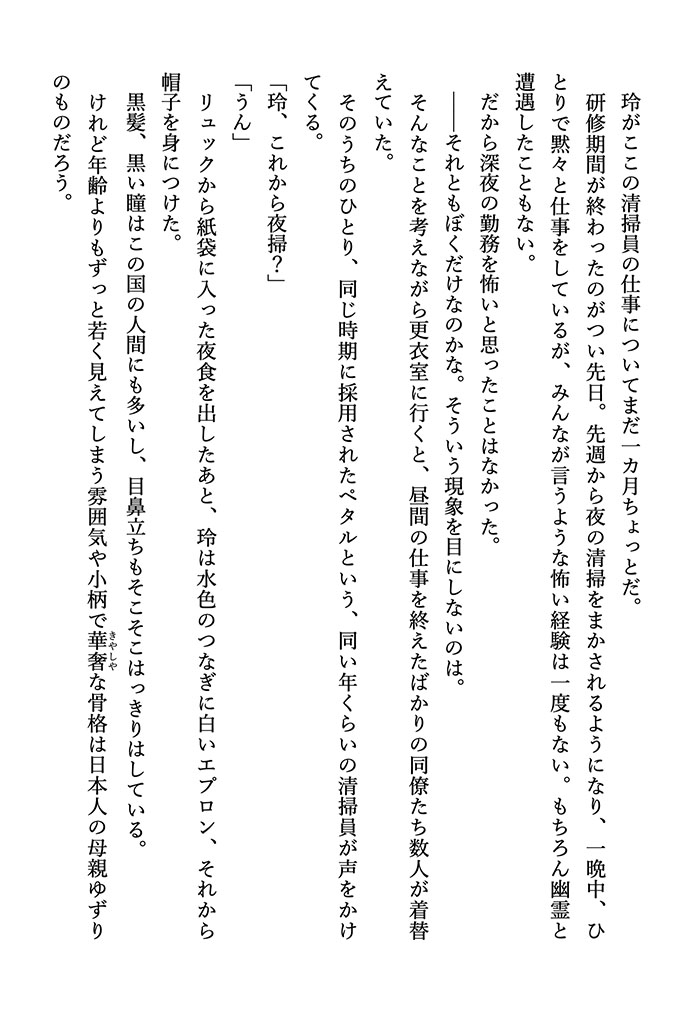 玲がここの清掃員の仕事についてまだ一カ月ちょっとだ。
研修期間が終わったのがつい先日。先週から夜の清掃をまかされるようになり、一晩中、ひ
とりで黙々と仕事をしているが、みんなが言うような怖い経験は一度もない。もちろん幽霊と
遭遇したこともない。
だから深夜の勤務を怖いと思ったことはなかった。
――それともぼくだけなのかな。そういう現象を目にしないのは。
そんなことを考えながら更衣室に行くと、昼間の仕事を終えたばかりの同僚たち数人が着替
えていた。
そのうちのひとり、同じ時期に採用されたペタルという、同い年くらいの清掃員が声をかけ
てくる。
「玲、これから夜掃？」
「うん」
リュックから紙袋に入った夜食を出したあと、玲は水色のつなぎに白いエプロン、それから
帽子を身につけた。
黒髪、黒い瞳はこの国の人間にも多いし、目鼻立ちもそこそこはっきりはしている。
けれど年齢よりもずっと若く見えてしまう雰囲気や小柄で華奢な骨格は日本人の母親ゆずり
きやしや
のものだろう。